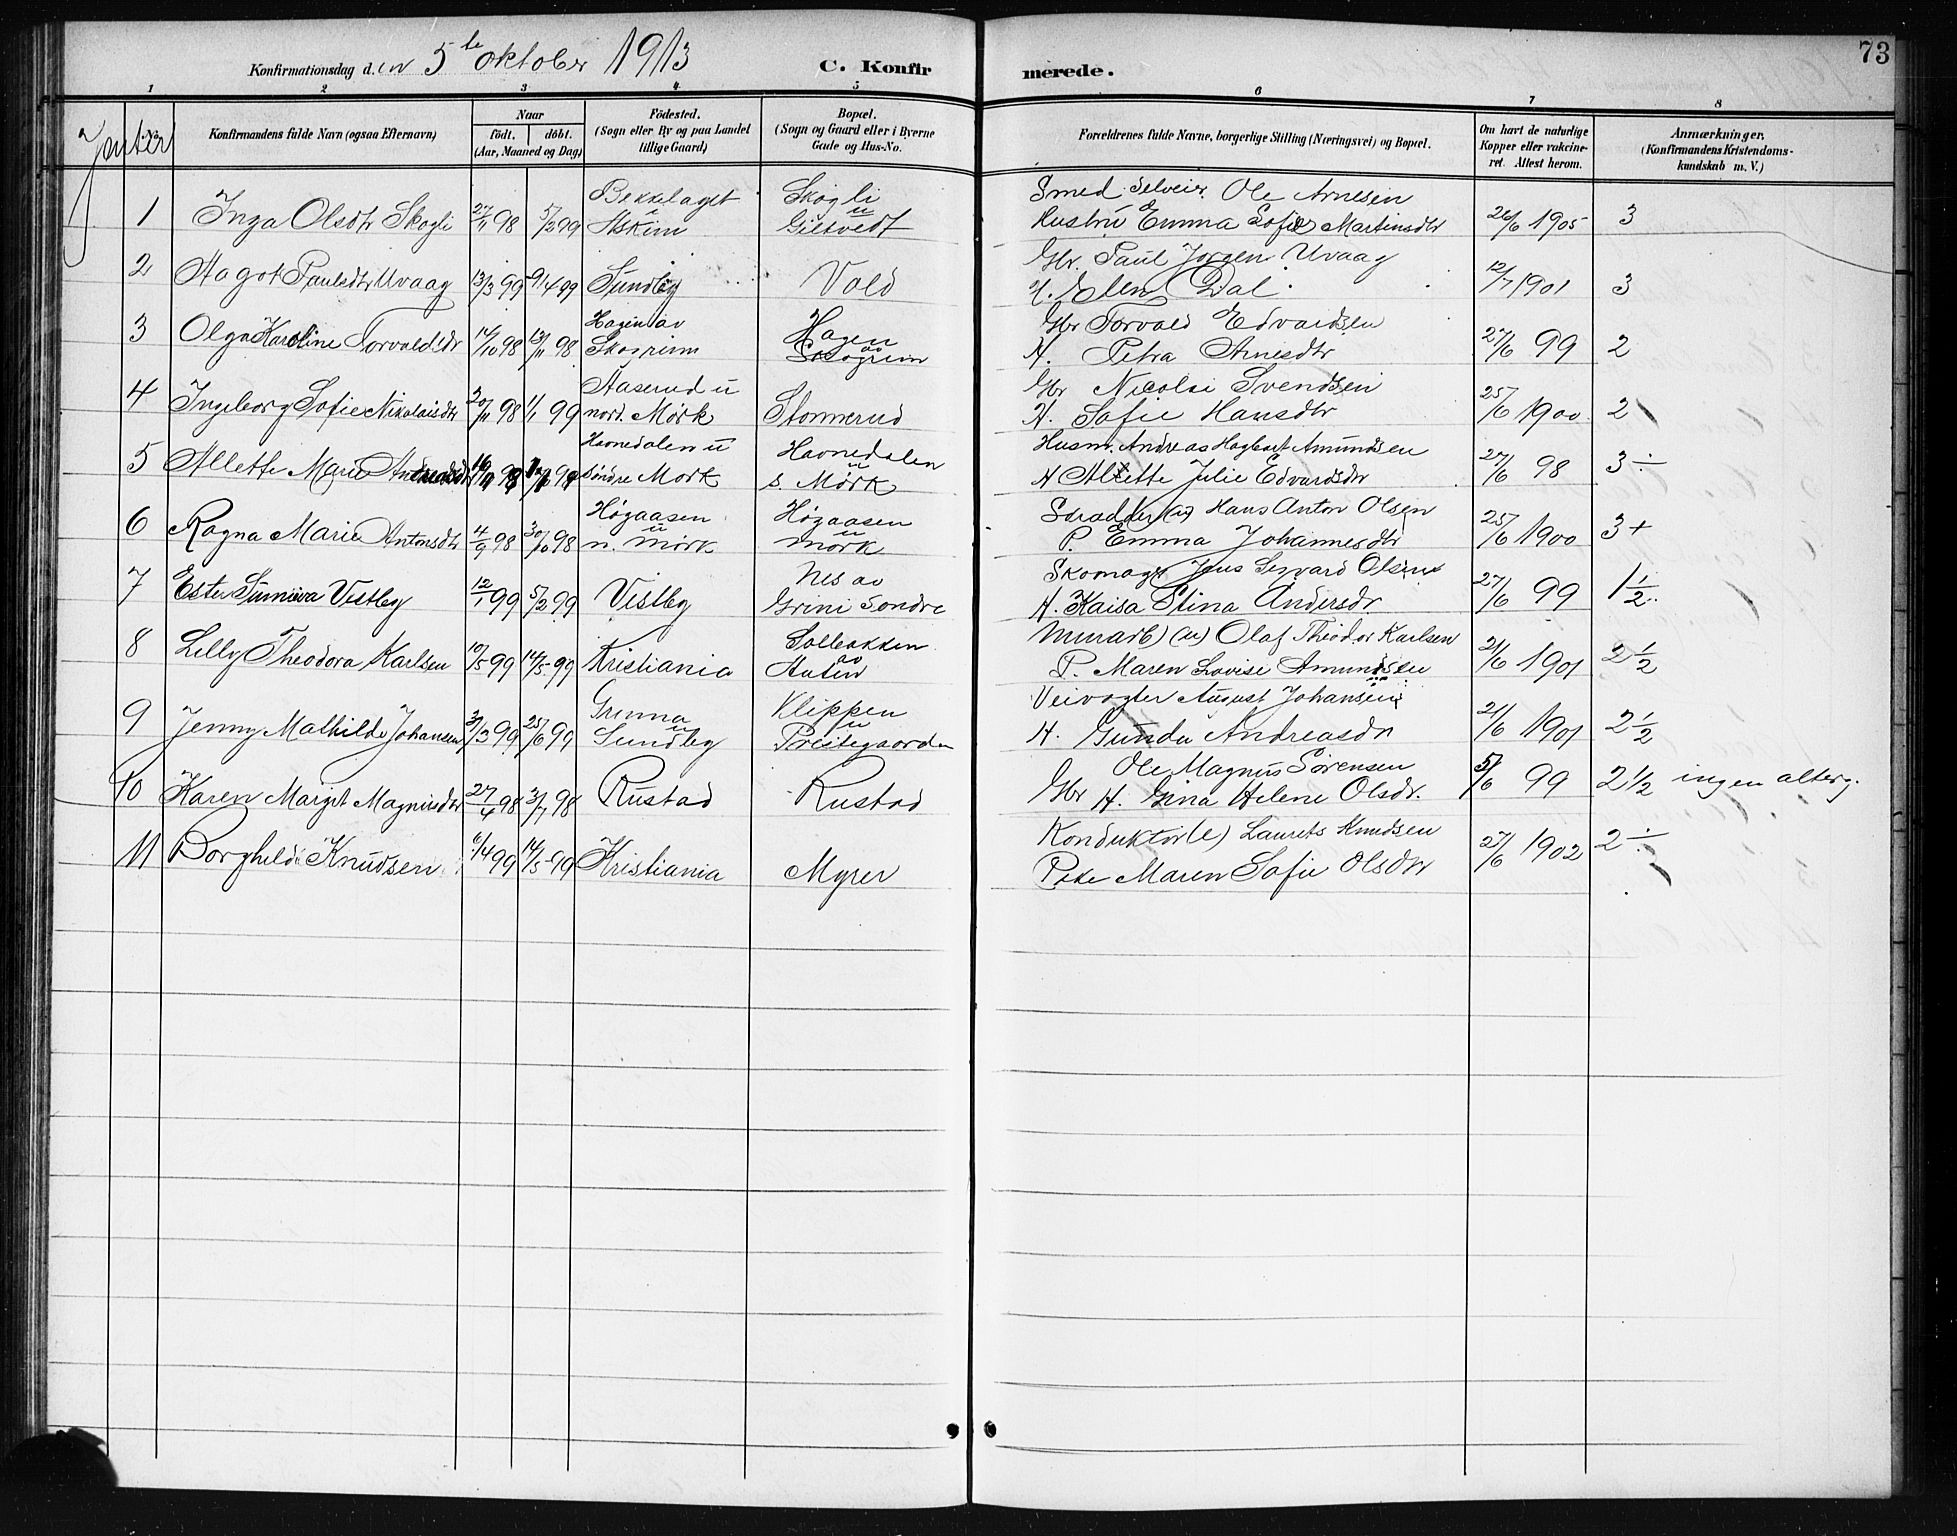 73
Konfirmationsdag d. en 5te oktober 1913 C. Konfirmerede.
1 2 3 4 5 6 7 8
Jenter
No.
Konfirmandens fulde Navn (ogsaa Efternavn)
Naar
födt. döbt.
(Aar, Maaned og Dag)
Födested.
(Sogn eller By og paa Landet
tillige Gaard)
Bopæl.
(Sogn og Gaard eller i Byerne
Gade og Hus-No.
Forældrenes fulde Navne, borgerlige Stilling (Næringsvei) og Bopæl.
Om havt de naturlige
Kopper eller vakcine-
ret. Attest herom.
Anmærkninger.
(Konfirmandens Kristendoms-
kundskab m. V.)
Bekkelaget Skogli Smed Selveier Ole Arnesen
1 Inga Olsdtr Skogli 27/11 98 5/2 99 u Askim u Giltvedt Hustru Emma Sofie Martinsdtr 26/6 1905 3
Gbr. Paul Jørgen Uvaag
2 Aagot Paulsdtr Uvaag 13/3 99 9/4 99 Sundby Vold H. Ellen Dal 12/7 1901 3
Hagen av Hagen Gbr Torvald Edvardsen
3 Olga Karoline Torvaldsdr 14/10 98 13/11 98 Skogrim av Skogrim H. Petra Arnesdtr 27/6 99 2
Aaserud u Gbr Nicolai Svendsen
4 Ingeborg Sofie Nikolaisdtr 20/11 98 1/1 99 nord. Mørk Stommerud H. Sofie Hansdtr 25/6 1900 2
Havnedalen u Havnedalen Husm. Andreas Hagbart Amundsen
5 Allette Marie Andreasdtr 98 98 søndre Mørk u s. Mørk H Alette Julie Edvardsdtr 27/6 98 3 ÷
Høgaasen Høgaasen Hans Anton Olsen
6 Ragna Marie Antonsdtr 4/9 98 30/10 98 u n. Mørk u Mørk P. Emma Johannesdtr 25/6 1900 3+
Nes av Skomager Jens Segvard Olsen
7 Ester Sunniva Vestby 12/1 99 5/2 99 Vestby Grini Søndre H. Kaisa Stina Andersdr 27/6 99 1 1/2
Solbakken Murarb) (u) Olaf Theodor Karlsen
8 Lilly Theodora Karlsen 10/5 99 14/5 99 Kristiania av P. Maren Lovise Amundsen 21/6 1901 2 1/2
Grinna Klippen Veivogter August Johansen
9 Jenny Mathilde Johansen 3/3 99 25/6 99 u Sundby u Prestegaarden H. Gunda Andreasdr 21/6 1901 2 1/2
Ole Magnus Sørensen
10 Karen Margit Magnusdtr 27/4 98 3/7 98 Rustad Rustad Gbr H. Gina Helene Olsdr. 5/6 99 2 1/2 ingen alterg.
Konduktør Laurits Knudsen
11 Borghild Knudsen 6/4 99 14/5 99 Kristiania Myrer Pike Maren Sofie Olsdtr 27/6 1902 2 ÷